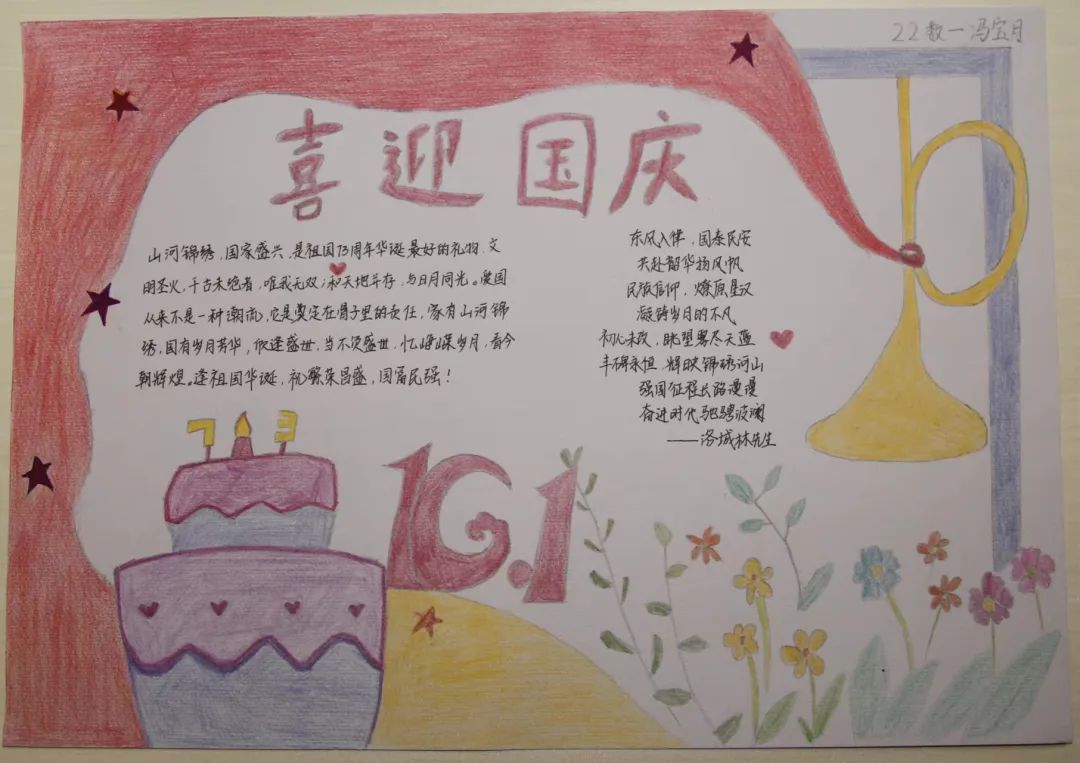 22数一冯宝月
喜迎国庆
山河锦绣，国家盛兴，是祖国73周年华诞最好的礼物，文
明圣火，千古未绝者，唯我无双；和天地并存，与日月同光。爱国
从来不是一种潮流，它是奠定在骨子里的责任，家有山河锦
绣，国有岁月芳华，欣逢盛世，当不负盛世，忆峥嵘岁月，看今
朝辉煌。逢祖国华诞，祝繁荣昌盛，国富民强！
东风入律，国泰民安
共赴韶华扬风帆
民族信仰，燎原星汉
凝铸岁月的不凡
初心未改，眺望雾尽天蓝
丰碑永恒，辉映锦绣河山
强国征程长路漫漫
奋进时代驰骋波澜
——洛城林先生
73
10.1